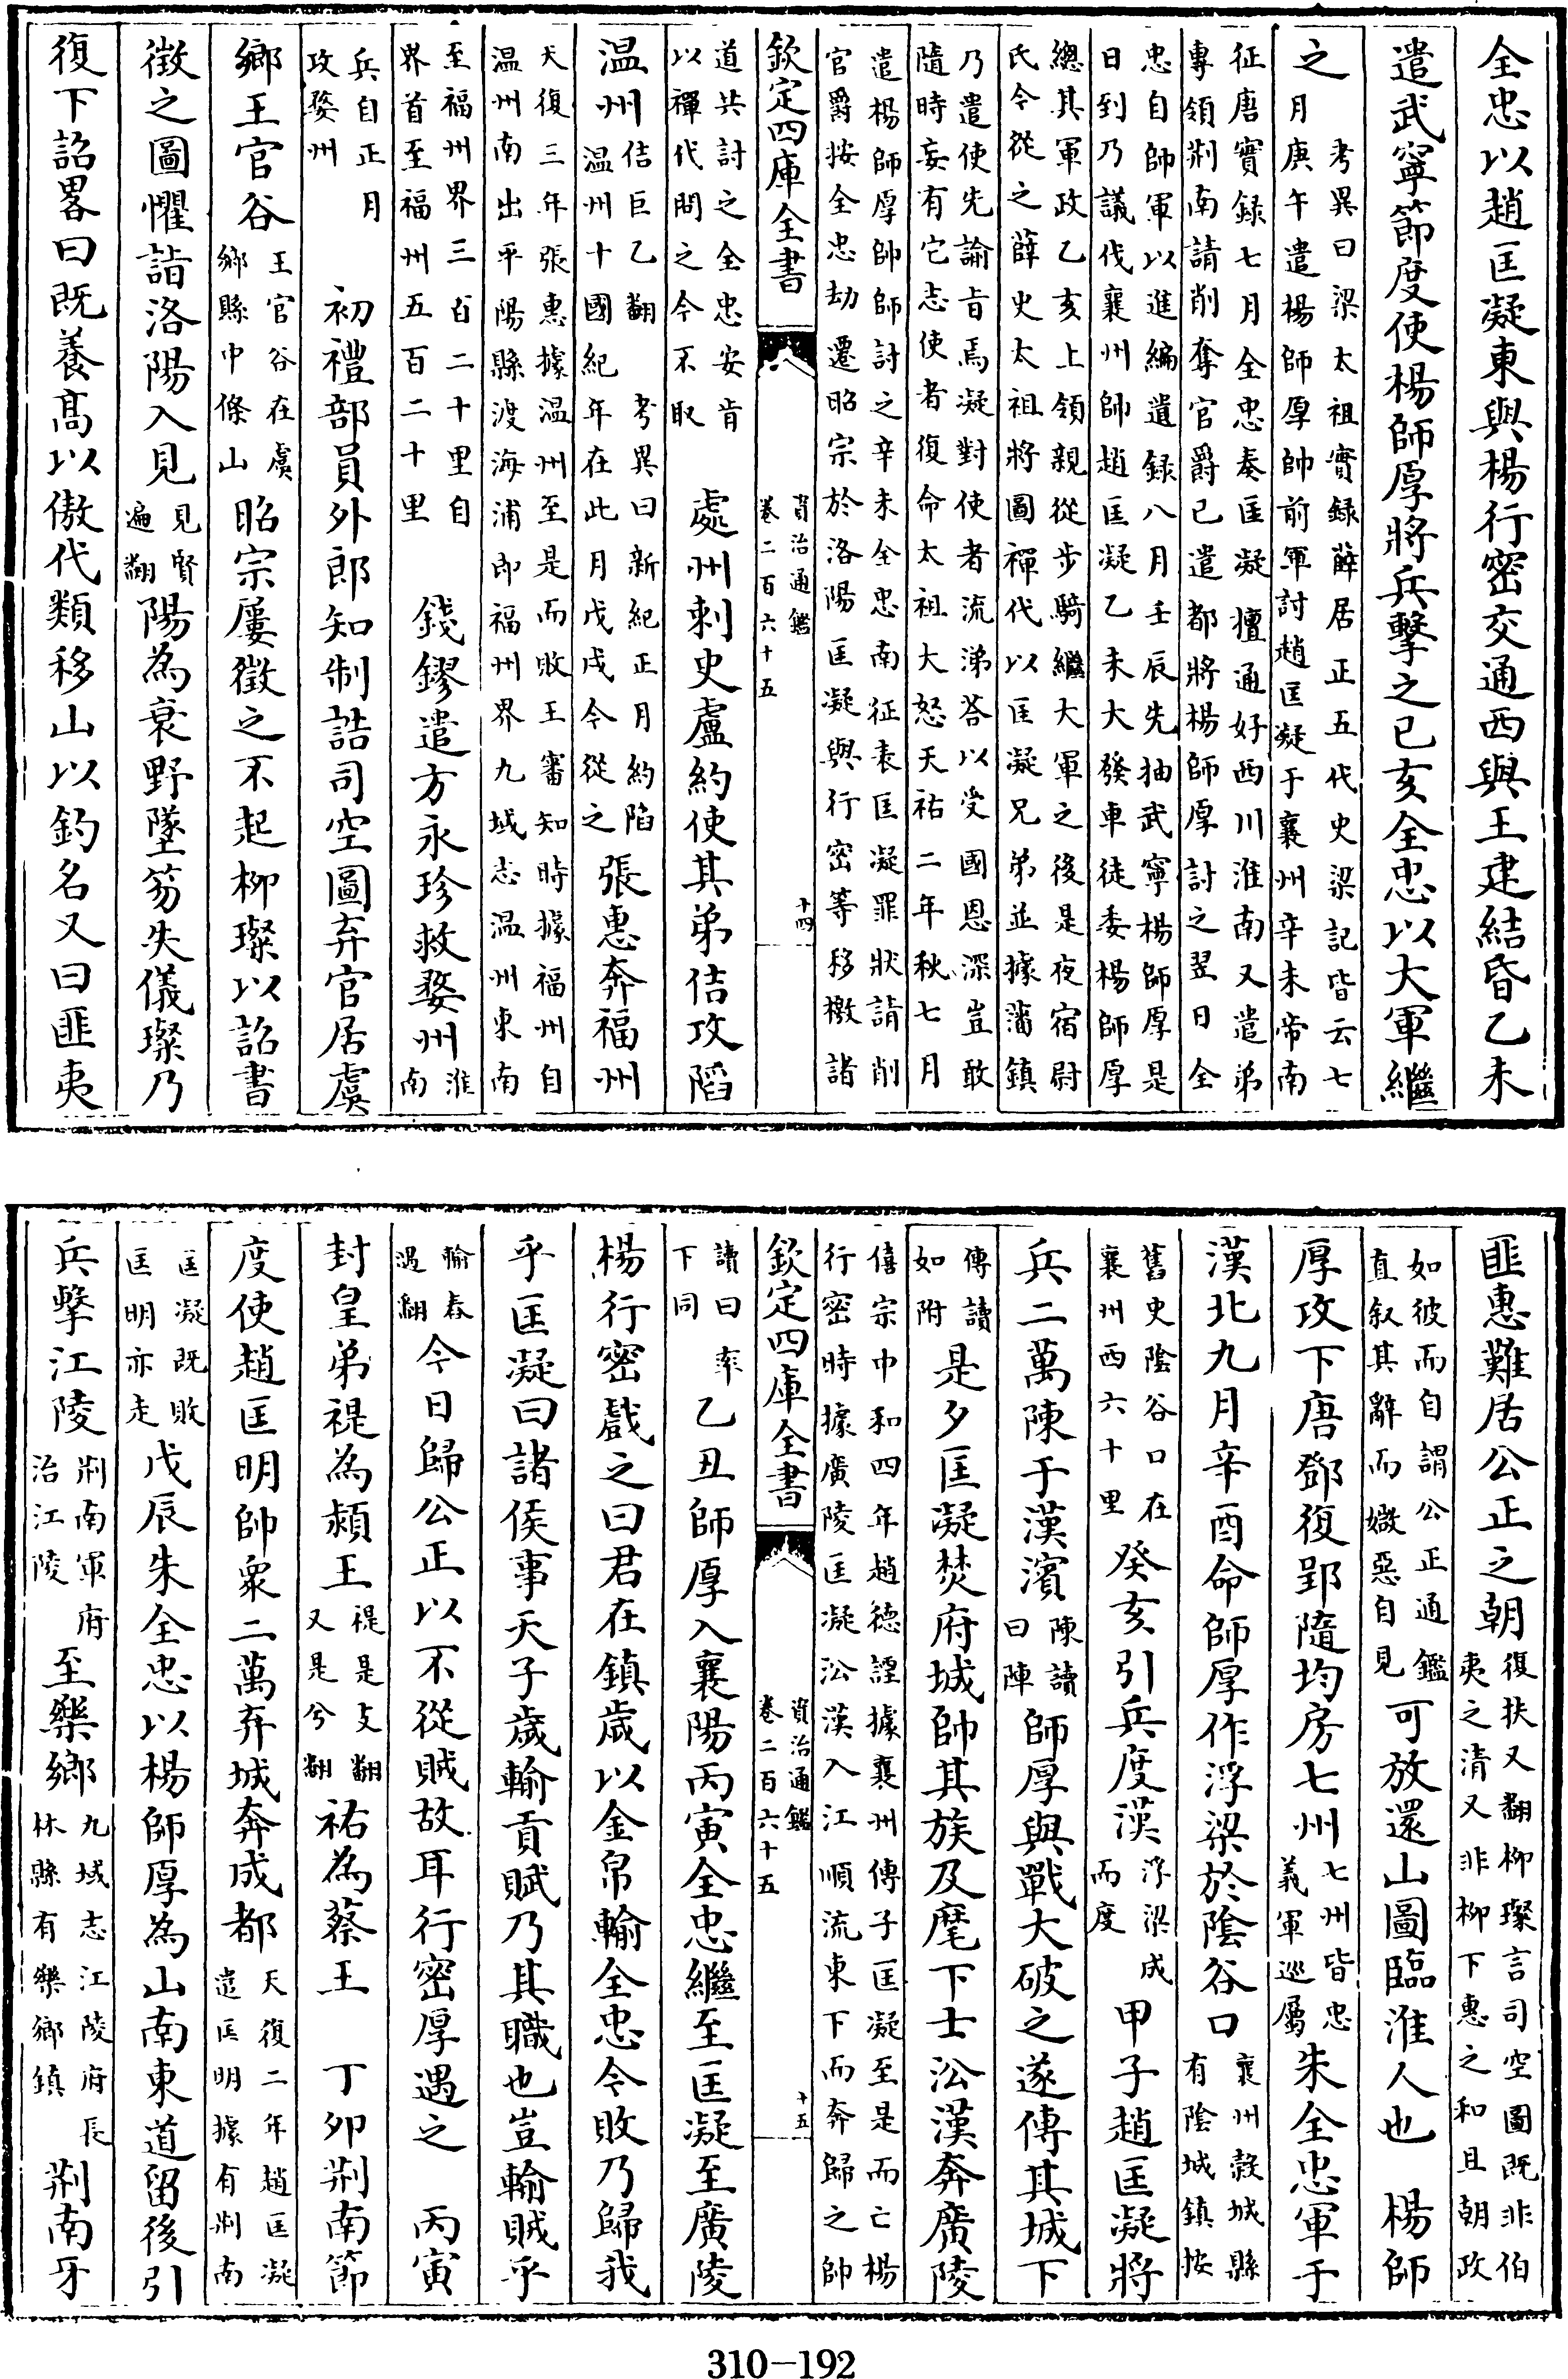 全忠以趙匡凝東與楊行密交通西與王建結昏乙未
遣武寧節度使楊師厚將兵擊之己亥全忠以大軍繼
之考異曰梁太祖實録薛居正五代史梁記皆云七
月庚午遣楊師厚帥前軍討趙匡凝于襄州辛未帝南
征唐實録七月全忠奏匡凝擅通好西川淮南又遣弟
專領荆南請削奪官爵已遣都將楊師厚討之翌日全
忠自帥軍以進編遺録八月壬辰先抽武寧楊師厚是
日到乃議伐襄州帥趙匡凝乙未大發車徒委楊師厚
總其軍政乙亥上領親從步騎繼大軍之後是夜宿尉
氏今從之薛史太祖將圖禪代以匡凝兄弟並據藩鎮
乃遣使先諭旨焉凝對使者流涕答以受國恩深豈敢
隨時妄有它志使者復命太祖大怒天祐二年秋七月
遣楊師厚帥師討之辛未全忠南征表匡凝罪狀請削
官爵按全忠劫遷昭宗於洛陽匡凝與行密等移檄諸
欽定四庫全書
資治通鑑
卷二百六十五
十四
道共討之全忠安肯
以禪代問之今不取
處州刺史盧約使其弟佶攻陷
温州佶巨乙翻
考異曰新紀正月約陷
温州十國紀年在此月戊戌今從之
張惠奔福州
天復三年張惠據温州至是而敗王審知時據福州自
温州南出平陽縣渡海浦即福州界九域志温州東南
至福州界三百二十里自
界首至福州五百二十里
錢鏐遣方永珍救婺州淮南
兵自正月
攻婺州
初禮部員外郎知制誥司空圖弃官居虞
鄉王官谷王官谷在虞
鄉縣中條山
昭宗屢徵之不起柳璨以詔書
徵之圖懼詣洛陽入見見賢
遍翻
陽為衰野墜笏失儀璨乃
復下詔畧曰既養髙以傲代類移山以釣名又曰匪夷
匪惠難居公正之朝復扶又翻柳璨言司空圖既非伯
夷之清又非柳下惠之和且朝政
如彼而自謂公正通鑑
直叙其辭而媺惡自見
可放還山圖臨淮人也
楊師
厚攻下唐鄧復郢隨均房七州七州皆忠
義軍巡屬
朱全忠軍于
漢北九月辛酉命師厚作浮梁於陰谷口襄州榖城縣
有陰城鎮按
舊史陰谷口在
襄州西六十里
癸亥引兵度漢浮梁成
而度
甲子趙匡凝將
兵二萬陳于漢濱陳讀
曰陣
師厚與戰大破之遂傅其城下
傅讀
如附
是夕匡凝焚府城帥其族及麾下士㳂漢奔廣陵
僖宗中和四年趙德諲據襄州傳子匡凝至是而亡楊
行密時據廣陵匡凝㳂漢入江順流東下而奔歸之帥
欽定四庫全書
資治通鑑
卷二百六十五
十五
讀曰率
下同
乙丑師厚入襄陽丙寅全忠繼至匡凝至廣陵
楊行密戲之曰君在鎮歲以金帛輸全忠今敗乃歸我
乎匡凝曰諸侯事天子歲輸貢賦乃其職也豈輸賊乎
輸舂
遇翻
今日歸公正以不從賊故耳行密厚遇之
丙寅
封皇弟禔為頴王禔是支翻
又是兮翻
祐為蔡王
丁卯荆南節
度使趙匡明帥衆二萬弃城奔成都天復二年趙匡凝
遣匡明據有荆南
匡凝既敗
匡明亦走
戊辰朱全忠以楊師厚為山南東道留後引
兵擊江陵荆南軍府
治江陵
至樂鄉九域志江陵府長
林縣有樂鄉鎮
荆南牙
310-192